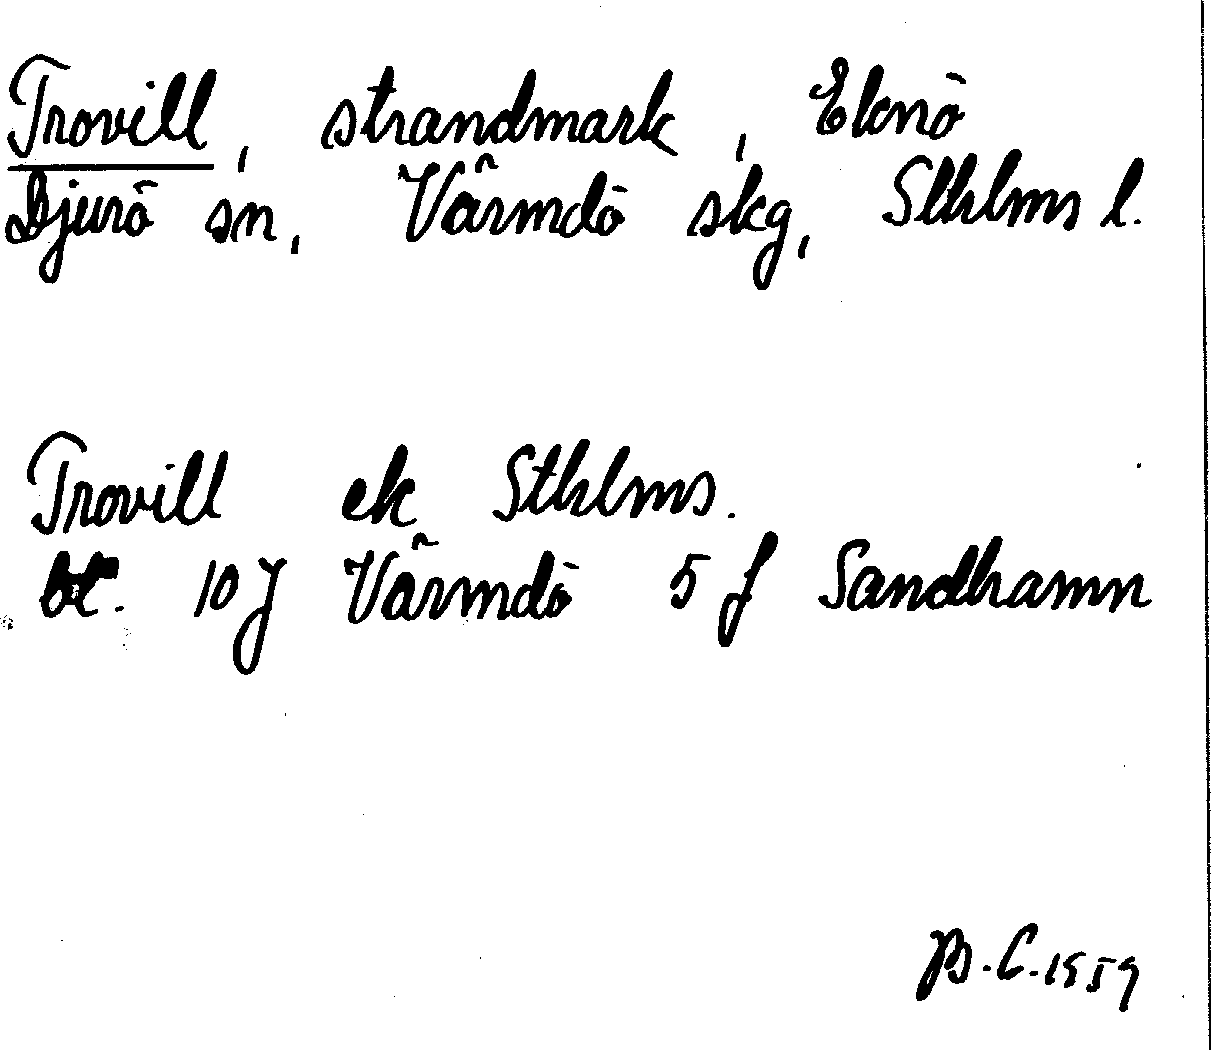 Trovill, strandmark, Eknö
Djurö sn, Värmdö skg, Sthlms l.
Trovill ek Sthlms.
bl. 10 J Värmdö 5 f Sandhamn
B.C. 1959